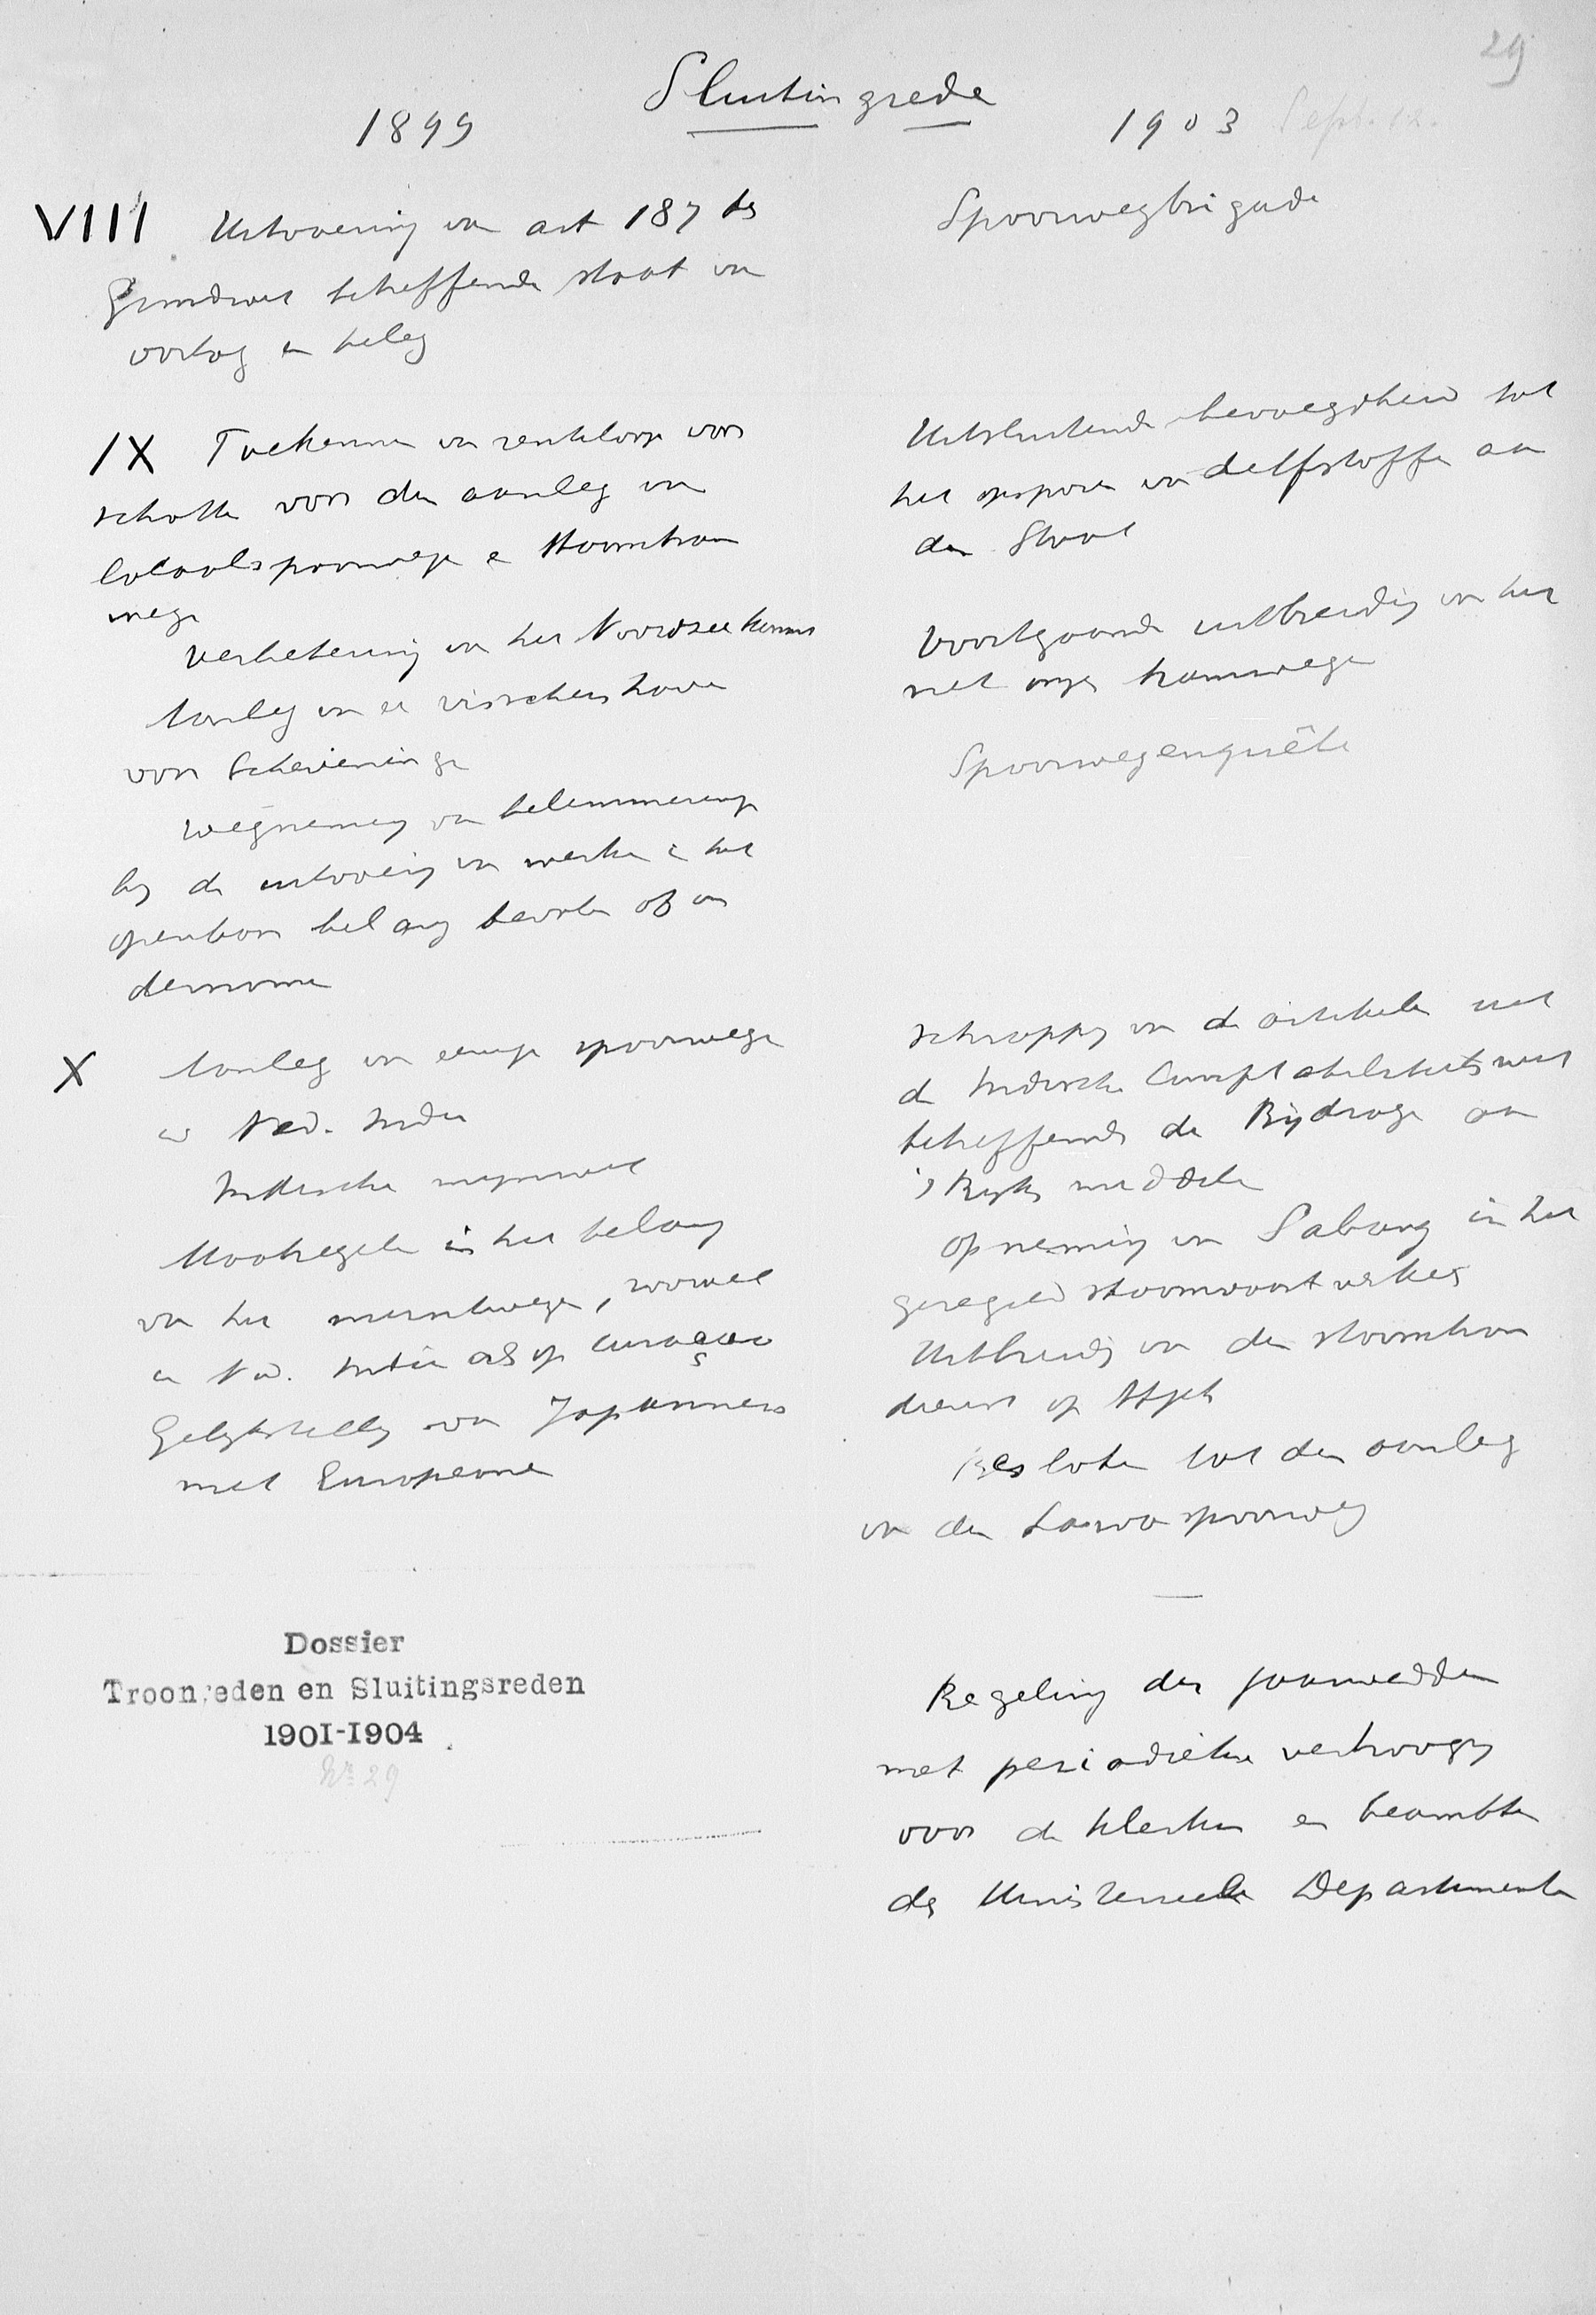 29
Sluitingrede
1899
1903 Sept. 12.
VIII Uitvoering van art 187 der
Grondwet betreffende staat van
oorlog en beleg
IX Toekennen van renteloze voor
schotten voor den aanleg van
locaalspoorwegen en stoomtram
wegen
Verbetering van het Noordzeekanaal
Aanleg van een visschershaven
voor Scheveningen
Wegneming van belemmeringen
bij de uitvoering van werken in het
openbaar belang bevolen of on
dernomen
X Aanleg van eenige spoorwegen
in Ned. Indië
Indische mijnwet
Maatregelen in het belang
van het muntwezen, zoowel
in Ned. Indië als op Curaçao
Gelijkstelling van Japanners
met Europeanen
Dossier
Troonreden en Sluitingsreden
1901-1904
No 29
Spoorwegbrigade
Uitsluitende bevoegdheid tot
het opsporen van delfstoffen aan
den Staat
Voortgaande uitbreiding van het
net onzer tramwegen
Spoorwegenquête
Schrapping van de artikelen uit
de Indische Comptabiliteitswet
betreffende de Bijdrage aan
's Rijks middelen
Opneming van Sabang in het
geregeld stoomvaartverkeer
Uitbreiding van den stoomtram
dienst op Atjeh
Besloten tot den aanleg
van den Lawa spoorweg
Regeling der jaarwedden
met periodieke verhooging
voor de klerken en beambten
der Ministerieele Departementen